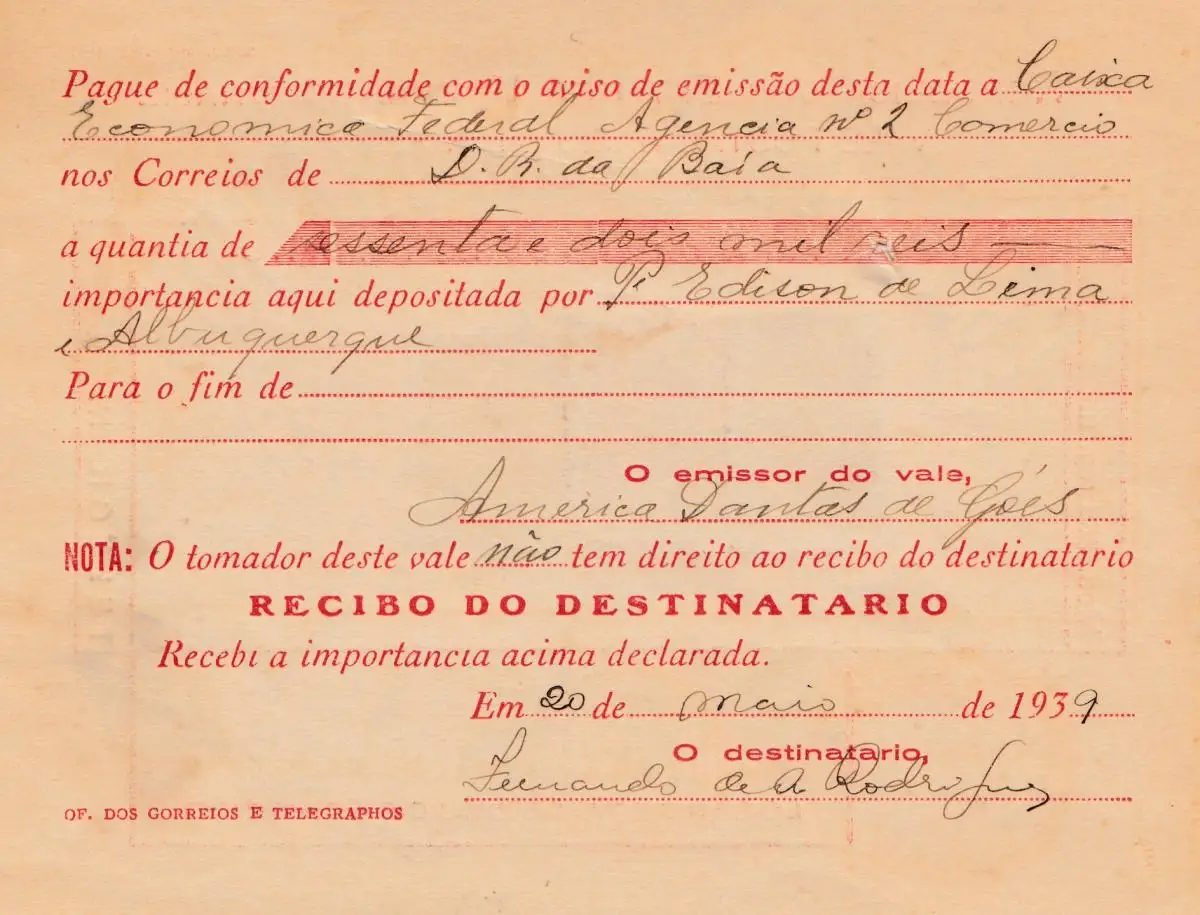 Pague de conformidade com o aviso de emissão desta data a Caixa
Economica Federal Agencia nº 2 Comercio
nos Correios de D. R. da Baía
a quantia de sessenta e dois mil reis
importancia aqui depositada por Pe Edison de Lima
e Albuquerque
Para o fim de
O emissor do vale,
America Dantas de Góes
NOTA: O tomador deste vale não tem direito ao recibo do destinatario
RECIBO DO DESTINATARIO
Recebi a importancia acima declarada.
Em 20 de maio de 1939
O destinatario,
Fernando de A Rodrigues
OF. DOS CORREIOS E TELEGRAPHOS